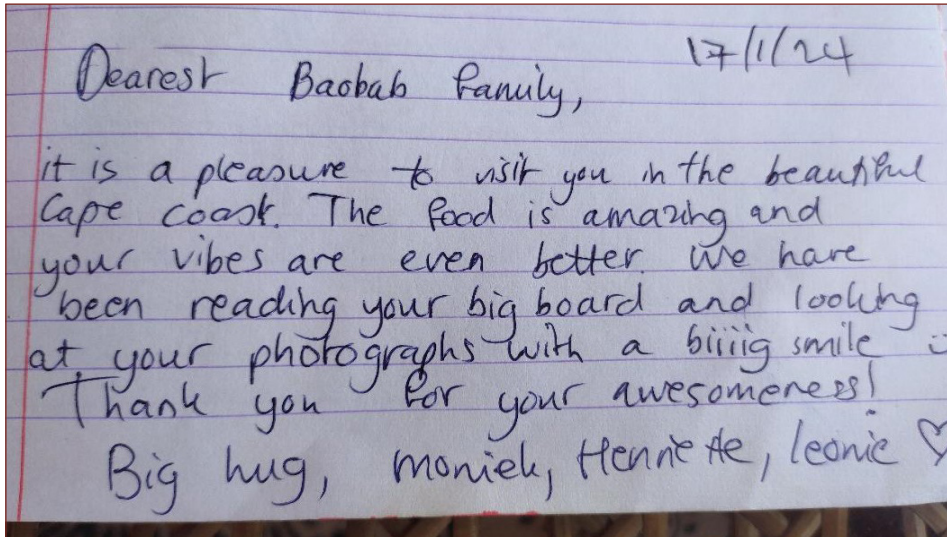 17/1/24
Dearest Baobab family,
it is a pleasure to visit you in the beautiful
Cape coast. The food is amazing and
your vibes are even better. We have
been reading your big board and looking
at your photographs with a biiiig smile :)
Thank you for your awesomeness!
Big hug, moniek, Henriette, leonie ♡